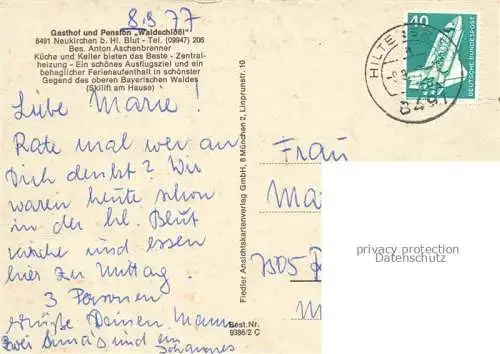 8.9.77
Gasthof und Pension „Waldschlößl"
8491 Neukirchen b. Hl. Blut - Tel. (09947) 206
Bes. Anton Aschenbrenner
Küche und Keller bieten das Beste - Zentral-
heizung - Ein schönes Ausflugsziel und ein
behaglicher Ferienaufenthalt in schönster
Gegend des oberen Bayerischen Waldes
(Skilift am Hause)
Liebe Marie!
Rate mal wer an
Dich denkt? Wir
waren heute schon
in der hl. Blut
Kirche und essen
hier zu Mittag.
3 Personen
Grüße Deinen Mann
zwei Simas und ein
Johannes
Fiedler Ansichtskartenverlag GmbH, 8 München 2, Linprunstr. 10
Best.Nr.
9386/2 C
40
DEUTSCHE BUNDESPOST
HILTE
849
Frau
Ma
privacy protection
Datenschutz